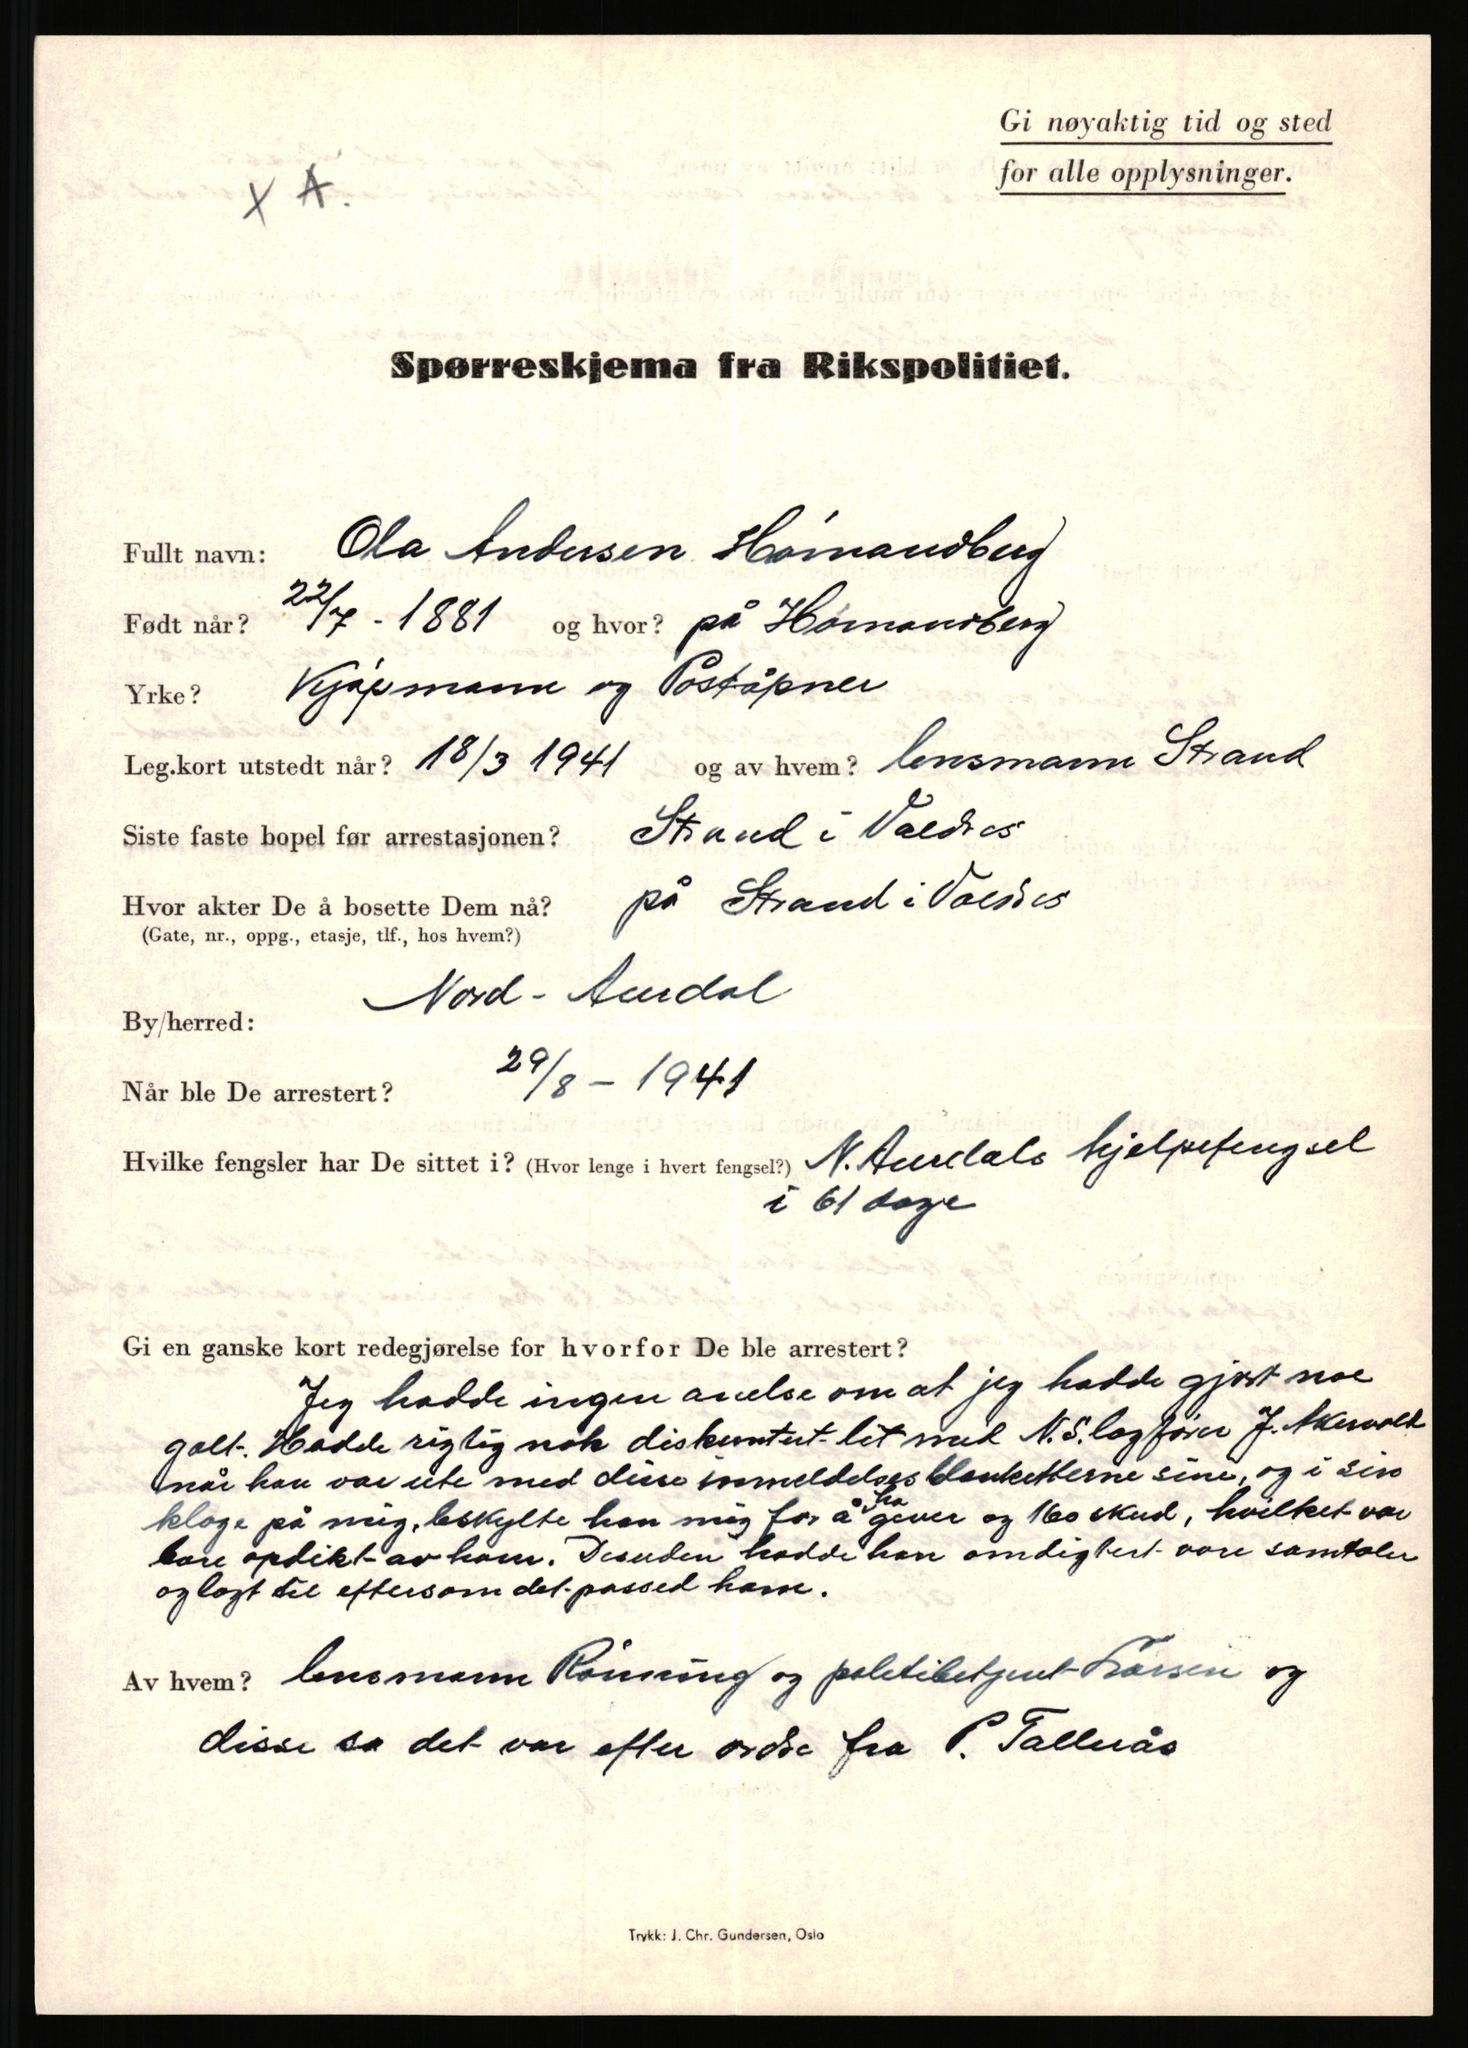 Gi nøyaktig tid og sted
for alle opplysninger.
X A.
Spørreskjema fra Rikspolitiet.
Fullt navn: Ola Andersen Hómandberg
Født når? 22/7 - 1881 og hvor? på Hómandberg
Yrke? Kjópmann og Poståpner
Leg.kort utstedt når? 18/3 1941 og av hvem? lensmann Strand
Siste faste bopel før arrestasjonen? Strand i Valdres
Hvor akter De å bosette Dem nå? på Strand i Valdres
(Gate, nr., oppg., etasje, tlf., hos hvem?)
By/herred: Nord-Aurdal
Når ble De arrestert? 29/8 - 1941
Hvilke fengsler har De sittet i? (Hvor lenge i hvert fengsel?) N. Aurdals hjelpefengsel
i 61 dage
Gi en ganske kort redegjørelse for hvorfor De ble arrestert?
Jeg hadde ingen anelse om at jeg hadde gjort noe
galt. Hadde rigtig nok diskuntert litt med N.S. lagfórer J.
når han var ute med disse innmeldelses blanketterne sine, og i sin
klage på mig, beskylte han mig for å ha gever og 160 skud, hvilket var
bare opdikt av ham. Desuden hadde han omdigtert vore samtaler
og lagt til eftersom det passed ham.
Av hvem? lensmann Rónning og politibetjent Larsen og
disse sa det var efter ordre fra P. Tallerås
Trykk: J. Chr. Gundersen, Oslo